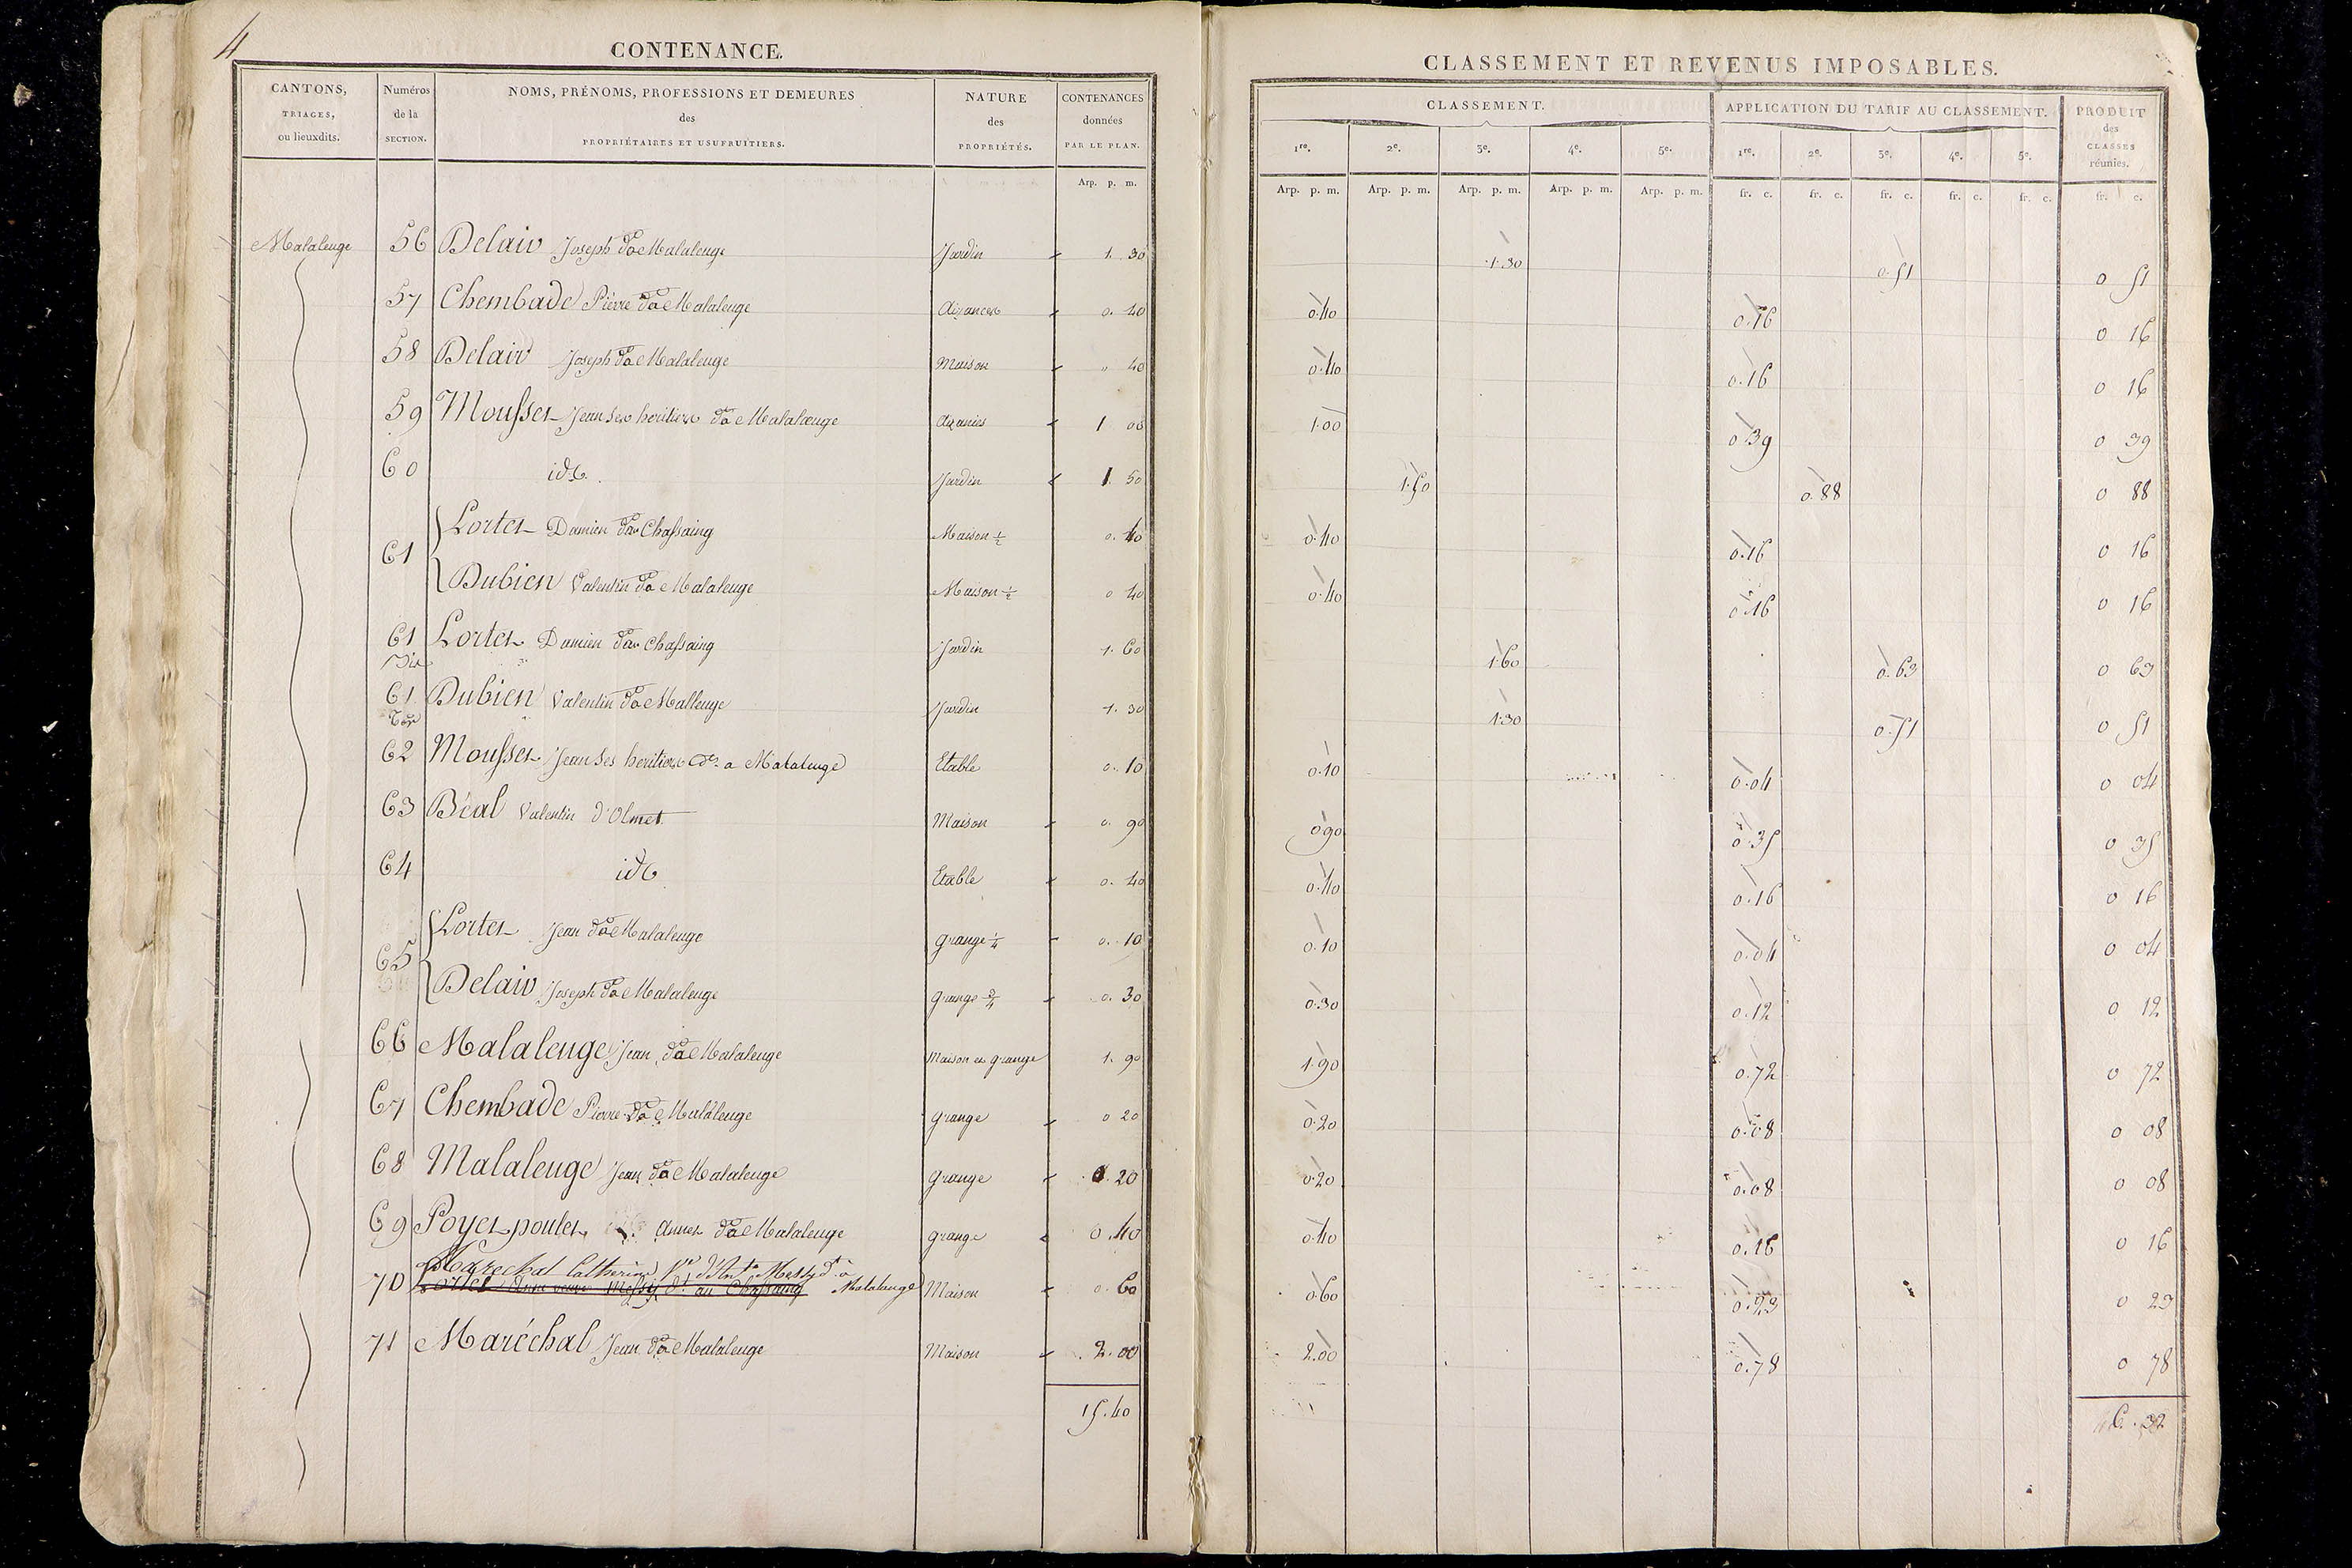 4
CONTENANCE.
CANTONS, TRIAGES, ou lieuxdits. Numéros de la SECTION. NOMS, PRÉNOMS, PROFESSIONS ET DEMEURES des PROPRIÉTAIRES ET USUFRUITIERS. NATURE des PROPRIÉTÉS. CONTENANCES données PAR LE PLAN.
Arp. p. m.
Malaleuge 56 Delair Joseph do a Malaleuge Jardin 1. 30
57 Chembade Pierre do a Malaleuge Aizances 0. 40
58 Delair Joseph do a Malaleuge Maison " 40
59 Mousset Jean Ses heritiers do a Malaleuge Aizances 1 00
60 id. Jardin 1. 50
61 Lortet Damien do au Chassaing Maison ½ 0. 40
Dubien Valentin do a Malaleuge Maison ½ 0 40
61 Bis Lortet Damien do au Chassaing Jardin 1. 60
61 Ter Dubien Valentin do a Malleuge Jardin 1. 30
62 Mousset Jean Ses heritiers do a Malaleuge Etable 0. 10
63 Béal Valentin d'Olmet Maison 0. 90
64 id. Etable 0. 40
65 Lortet Jean do a Malaleuge grange ¼ 0. 10
Delair Joseph do a Malaleuge grange ¾ 0. 30
66 Malaleuge Jean do a Malaleuge Maison et grange 1. 90
67 Chembade Pierre do a Malaleuge grange 0 20
68 Malaleuge Jean do a Malaleuge grange 0. 20
69 Poyet poulet Annet do a Malaleuge grange 0. 40
Marechal Catherine Ve d'Ante Massy dt à Malaleuge
70 Maison 0. 60
71 Maréchal Jean do a Malaleuge Maison 2. 00
15. 40
CLASSEMENT ET REVENUS IMPOSABLES.
CLASSEMENT. APPLICATION DU TARIF AU CLASSEMENT. PRODUIT des CLASSES réunies.
1re. 2e. 3e. 4e. 5e. 1re. 2e. 3e. 4e. 5e.
Arp. p. m. Arp. p. m. Arp. p. m. Arp. p. m. Arp. p. m. fr. c. fr. c. fr. c. fr. c. fr. c. fr. c.
1.30 0.51 0 51
0.40 0.16 0 16
0.40 0.16 0 16
1.00 0.39 0 39
1.50 0.88 0 88
0.40 0.16 0 16
0.40 0.16 0 16
1.60 0.63 0 63
1.30 0.51 0 51
0.10 0.04 0 04
0.90 0.35 0 35
0.40 0.16 0 16
0.10 0.04 0 04
0.30 0.12 0 12
1.90 0.72 0 72
0.20 0.08 0 08
0.20 0.08 0 08
0.40 0.16 0 16
0.60 0.23 0 23
2.00 0.78 0 78
6. 32